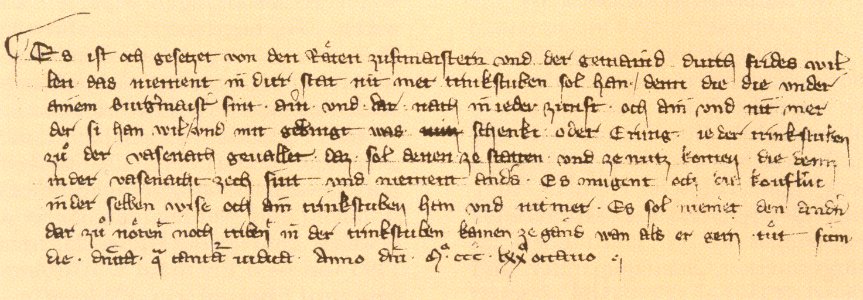 Es ist och gesetzet von den Räten zunftmaistern und der gemaind durch frides wil
len das niement in dirr stat nit mer trinkstuben sol han / denn die die under
ainem burgmaist sint · ain · und · dar nach in ieder zunft · och ain und nit mer
der si han wil / und mit gedingt was schenki oder Erung ieder trinkstuben
zuͦ der vasenach gevallet · daz · sol denen ze statten · und ze nutz komen · die denn
in der vasenacht zech sint und niement anders · Es mugent och koufluͥt
in der selben wise och ain trinkstuben han und nit mer · Es sol niemet den andn
dar zuͦ noͤten noch triben in der trinkstuben kainen ze gand wan als er gern tuͦt
die · dnica · qa cantat iudica · Anno dni · Mͦ · ccc · lxxͦ octavo ·